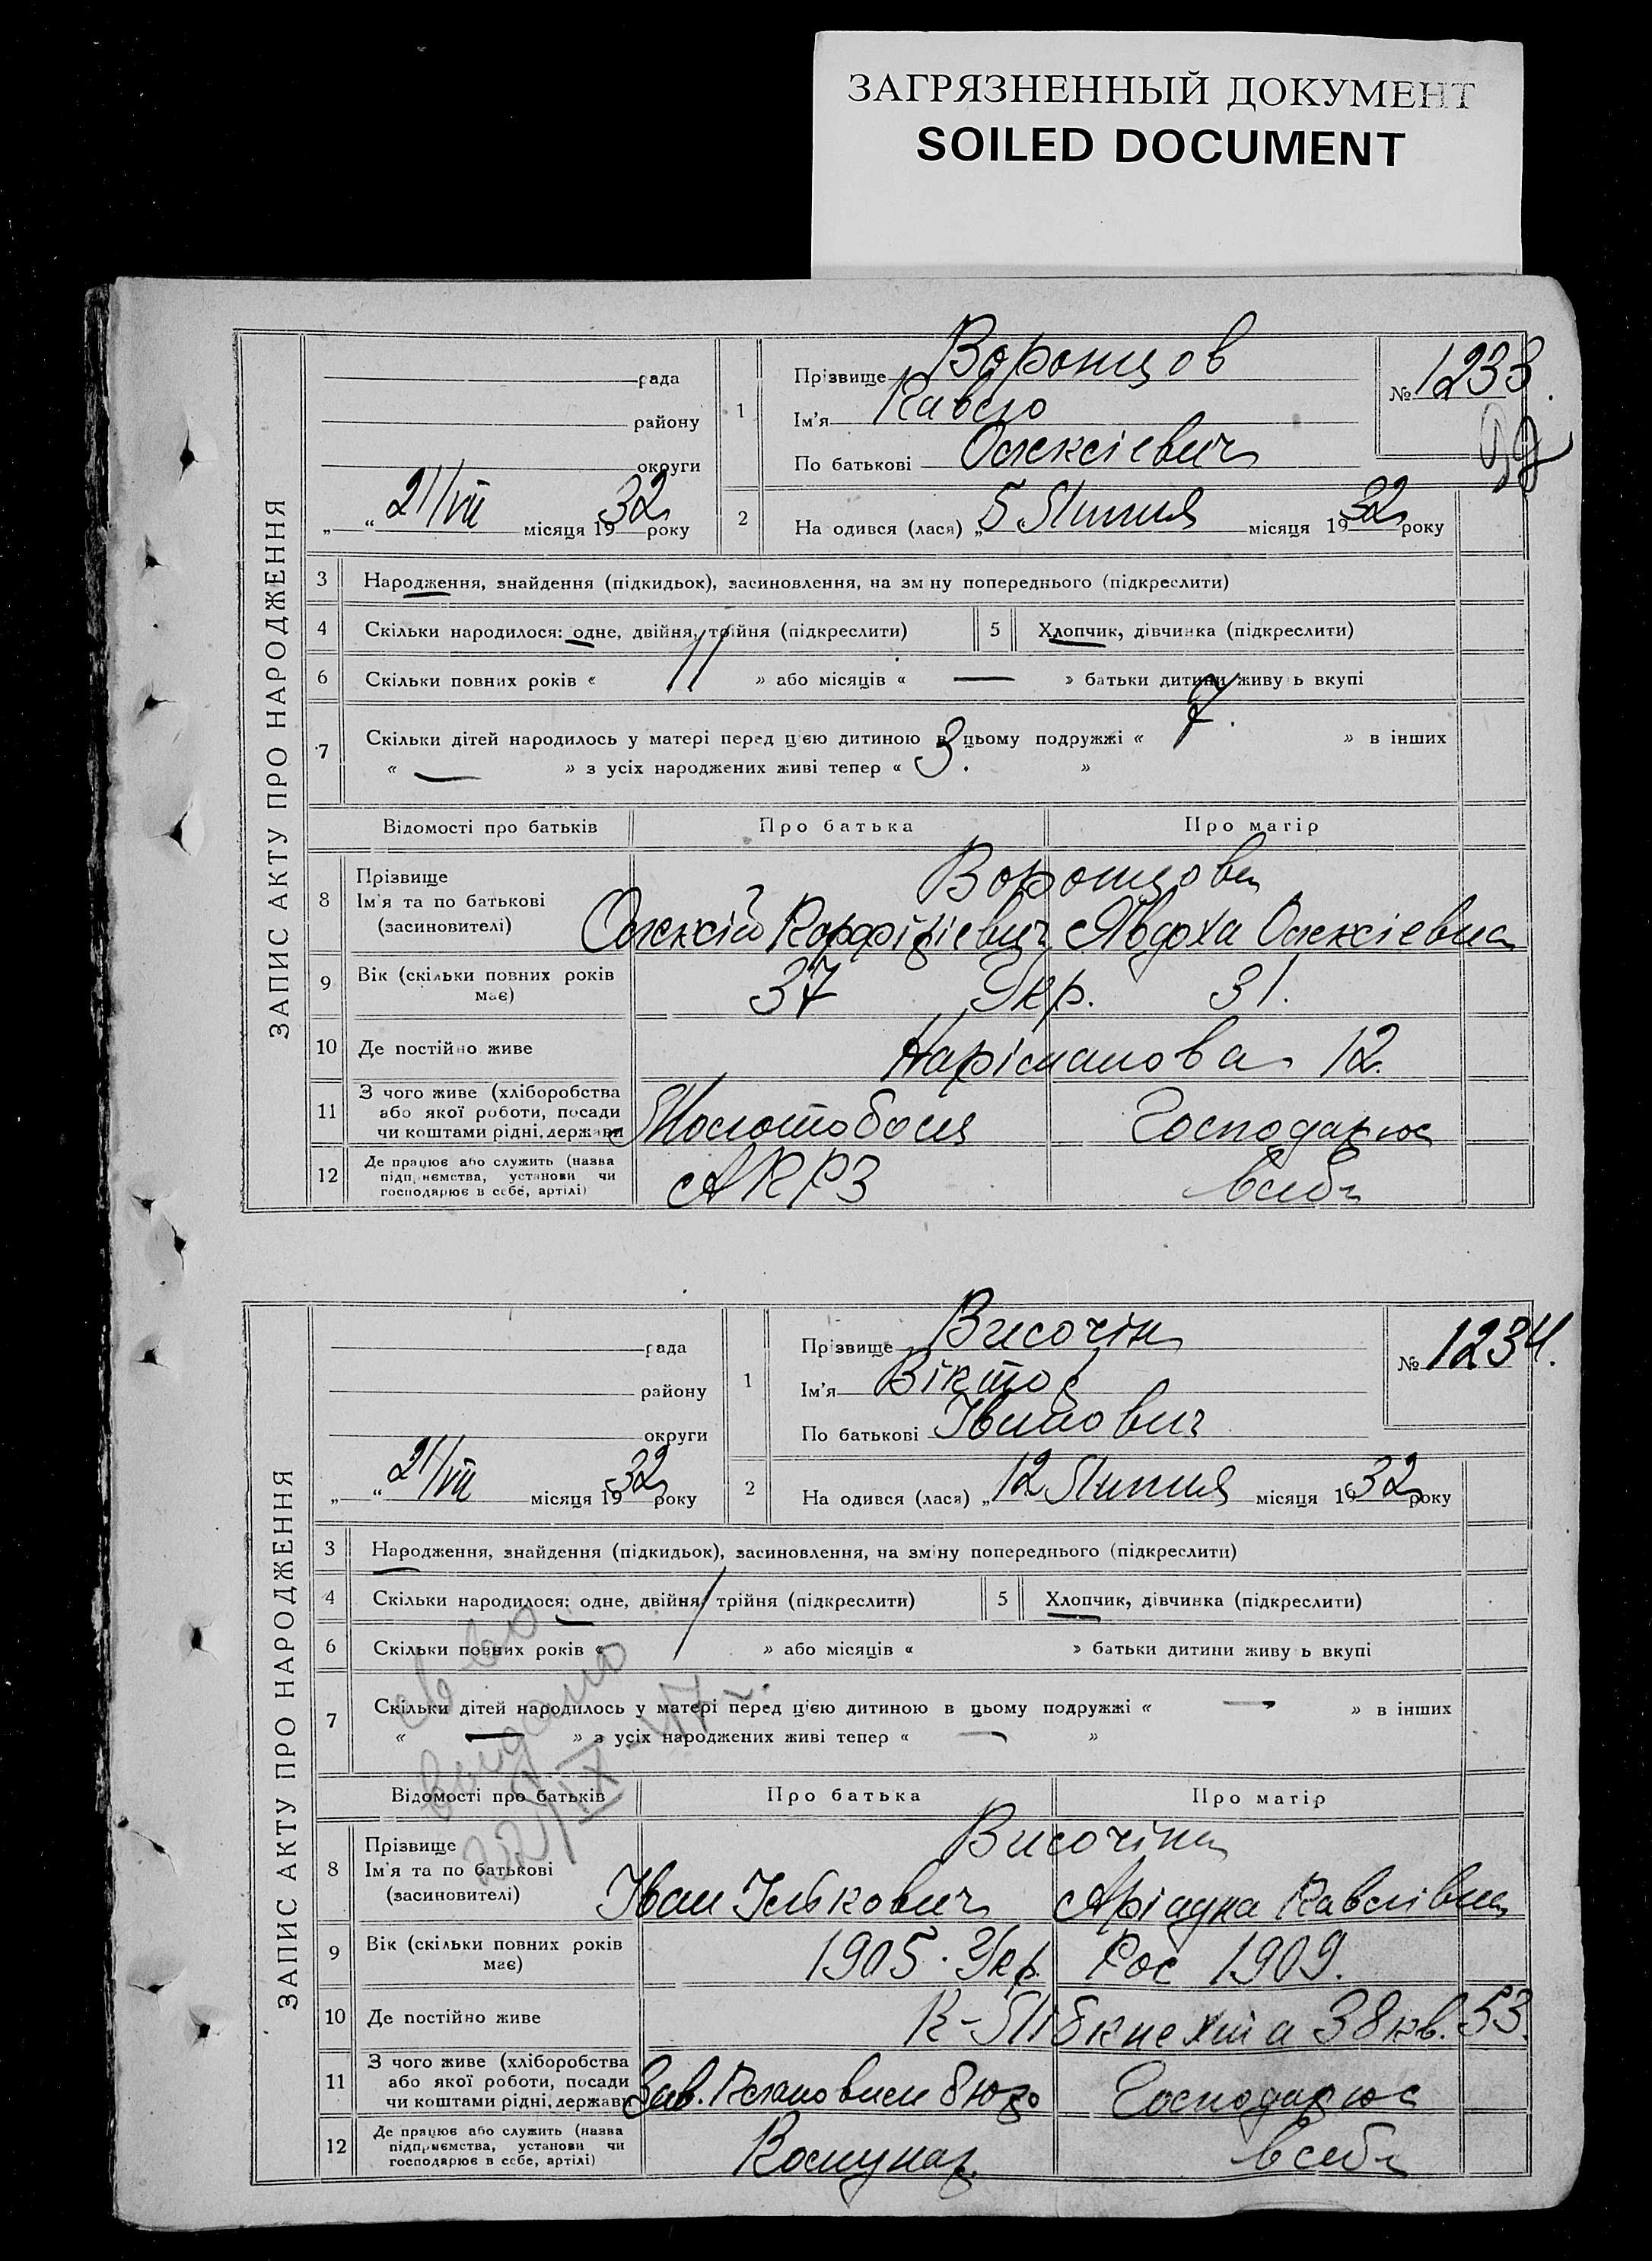 ЗАГРЯЗНЕННЫЙ ДОКУМЕНТ
SOILED DOCUMENT
ЗАПИС АКТУ ПРО НАРОДЖЕННЯ
рада
району
округи
„ “ 21/VII місяця 1932 року
1
Прізвище Воронцов
Ім'я Павло
По батькові Олексієвич
№ 1233.
2
На одився (лася) „ 5 Липня місяця 1932 року
3 Народження, знайдення (підкидьок), засиновлення, на зм ну попереднього (підкреслити)
4 Скільки народилося: одне, двійня, трійня (підкреслити) 5 Хлопчик, дівчинка (підкреслити)
6 Скільки повних років « 11 » або місяців « — » батьки дитини живу ь вкупі
7 Скільки дітей народилось у матері перед цією дитиною в цьому подружжі « 7. » в інших
« — » з усіх народжених живі тепер « 3. »
Відомості про батьків Про батька Про матір
8 Прізвище
Ім'я та по батькові
(засиновителі)
Воронцови
Олексій Явдоха Олексієвна
9 Вік (скільки повних років має) 37 Укр. 31.
10 Де постійно живе Наріманова 12.
11 З чого живе (хліборобства або якої роботи, посади чи коштами рідні, держави Молотобоєц Господарює
12 Де працює або служить (назва підприємства, установи чи господарює в себе, артілі) АКРЗ в себе
ЗАПИС АКТУ ПРО НАРОДЖЕННЯ
рада
району
округи
„ “ 21/VII місяця 1932 року
1
Прізвище Височін
Ім'я Віктор
По батькові Іванович
№ 1234.
2
На одився (лася) „ 12 Липня місяця 1932 року
3 Народження, знайдення (підкидьок), засиновлення, на зміну попереднього (підкреслити)
4 Скільки народилося: одне, двійня, трійня (підкреслити) 5 Хлопчик, дівчинка (підкреслити)
6 Скільки повних років « 1 » або місяців « » батьки дитини живу ь вкупі
7 Скільки дітей народилось у матері перед цією дитиною в цьому подружжі « — » в інших
« — » з усіх народжених живі тепер « — »
св во
выдано
22/IX-47 г.
Відомості про батьків Про батька Про матір
8 Прізвище
Ім'я та по батькові
(засиновителі)
Височіни
Іван Ількович Аріадна Павлівна
9 Вік (скільки повних років має) 1905. Укр. Рос 1909.
10 Де постійно живе К-Лібкнехта 38 кв. 53.
11 З чого живе (хліборобства або якої роботи, посади чи коштами рідні, держави Зав. бюро Господарює
12 Де працює або служить (назва підприємства, установи чи господарює в себе, артілі) Комунар. в себе